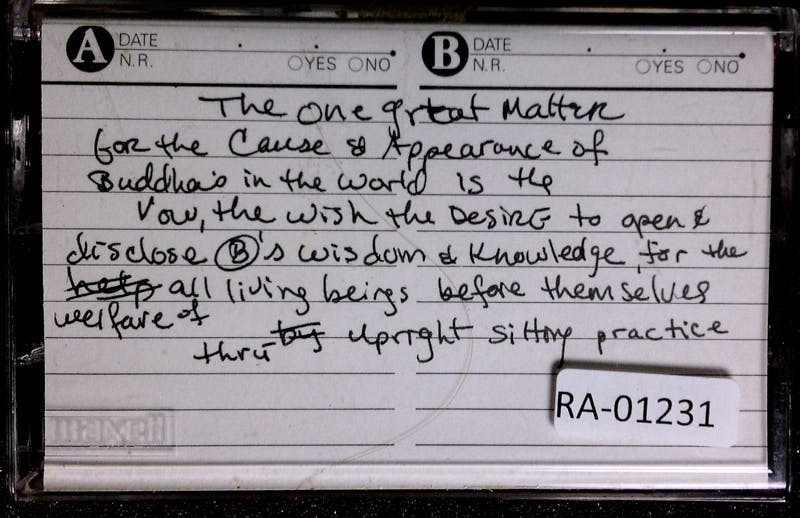 A DATE
N.R. YES NO
B DATE
N.R. YES NO
The One great Matter
for the Cause & Appearance of
Buddha's in the world is the
Vow, the wish the Desire to open &
disclose B's wisdom & Knowledge, for the
help all living beings before themselves
welfare of
thru by upright sitting practice
RA-01231
maxell